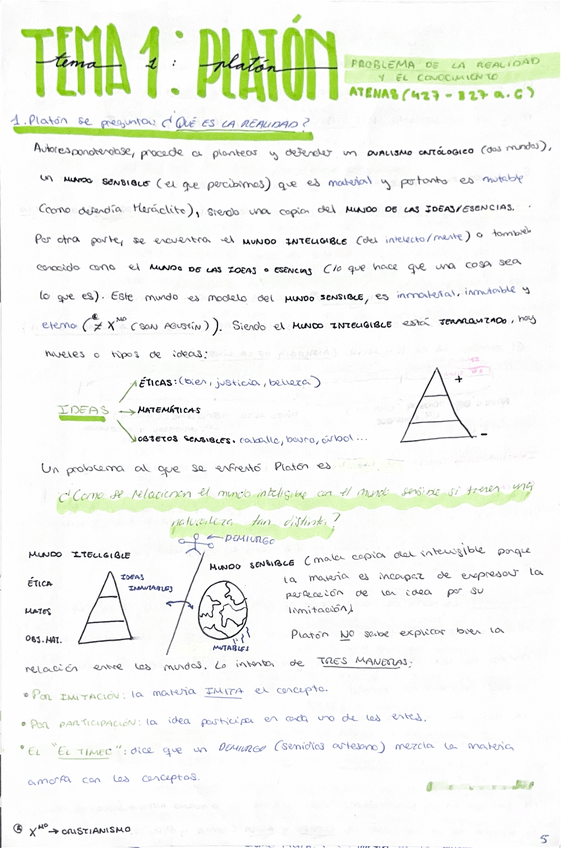 TEMA 1: PLATÓN
tema 1: platón
PROBLEMA DE LA REALIDAD
Y EL CONOCIMIENTO
ATENAS (427-327 a.C)
1. Platón se pregunta: ¿QUÉ ES LA REALIDAD?
Autorespondiendose, procede a plantear y defender un DUALISMO ONTOLÓGICO (dos mundos),
un MUNDO SENSIBLE (el que percibimos) que es material y por tanto es mutable
(como defendía Heráclito), siendo una copia del MUNDO DE LAS IDEAS/ESENCIAS.
Por otra parte, se encuentra el MUNDO INTELIGIBLE (del intelecto/mente) o también
conocido como el MUNDO DE LAS IDEAS o ESENCIAS (lo que hace que una cosa sea
lo que es). Este mundo es modelo del MUNDO SENSIBLE, es inmaterial, inmutable y
eterno (≠ X^NO (SAN AGUSTÍN)). Siendo el MUNDO INTELIGIBLE está JERARQUIZADO, hay
niveles o tipos de ideas:
ÉTICAS: (bien, justicia, belleza)
IDEAS → MATEMÁTICAS
OBJETOS SENSIBLES. caballo, burro, árbol...
+
-
Un problema al que se enfrentó Platón es
¿Como se relacionan el mundo inteligible con el mundo sensible si tienen una
naturaleza tan distinta?
← DEMIURGO
MUNDO ITELIGIBLE
ÉTICA
MATES
OBJ. MAT.
IDEAS
INMUTABLES
MUNDO SENSIBLE (mala copia del inteligible porque
la materia es incapaz de expresar la
perfección de la idea por su
limitación)
MUTABLES
Platón NO sabe explicar bien la
relación entre los mundos. Lo intenta de TRES MANERAS:
• POR IMITACIÓN: la materia IMITA el concepto.
• POR PARTICIPACIÓN: la idea participa en cada uno de los entes.
• EL "EL TIMEO": dice que un DEMIURGO (semidios artesano) mezcla la materia
amorfa con los conceptos.
X^NO → CRISTIANISMO
5